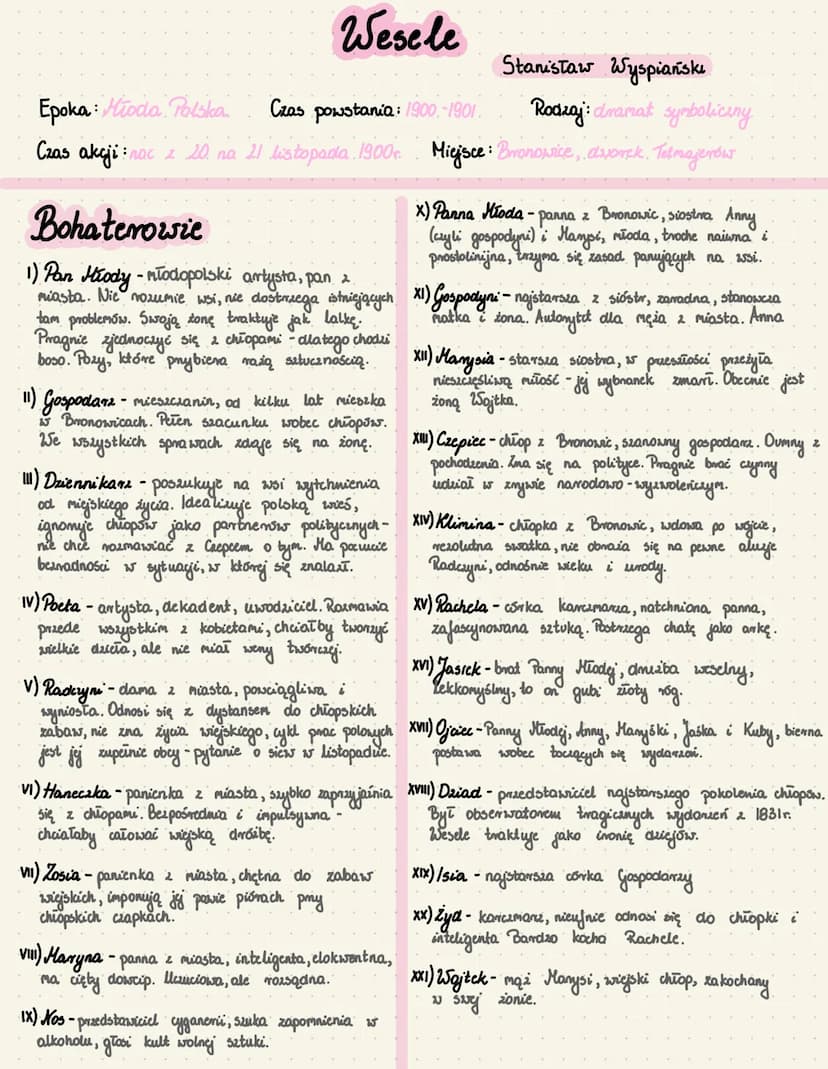 Wesele
Stanisław Wyspiański
Epoka: Młoda Polska Czas powstania: 1900-1901 Rodzaj: dramat symboliczny
Czas akcji: noc z 20 na 21 listopada 1900r. Miejsce: Bronowice, dworek Tetmajerów
Bohaterowie
I) Pan Młody - młodopolski artysta, pan z
miasta. Nie rozumie wsi, nie dostrzega istniejących
tam problemów. Swoją żonę traktuje jak lalkę.
Pragnie zjednoczyć się z chłopami - dlatego chodzi
boso. Pozy, które przybiera rażą sztucznością.
II) Gospodarz - mieszczanin, od kilku lat mieszka
w Bronowicach. Pełen szacunku wobec chłopów.
We wszystkich sprawach zdaje się na żonę.
III) Dziennikarz - poszukuje na wsi wytchnienia
od miejskiego życia. Idealizuje polską wieś,
ignoruje chłopów jako partnerów politycznych -
nie chce rozmawiać z Czepcem o tym. Ma poczucie
bezradności w sytuacji, w której się znalazł.
IV) Poeta - artysta, dekadent, uwodziciel. Rozmawia
przede wszystkim z kobietami, chciałby tworzyć
wielkie dzieła, ale nie miał weny twórczej.
V) Radczyni - dama z miasta, powściągliwa i
wyniosła. Odnosi się z dystansem do chłopskich
zabaw, nie zna życia wiejskiego, cykl prac polowych
jest jej zupełnie obcy - pytanie o siew w listopadzie.
VI) Haneczka - panienka z miasta, szybko zaprzyjaźnia
się z chłopami. Bezpośrednia i impulsywna -
chciałaby całować wiejską drużbę.
VII) Zosia - panienka z miasta, chętna do zabaw
wiejskich, imponują jej pawie piórach przy
chłopskich czapkach.
VIII) Maryna - panna z miasta, inteligenta, elokwentna,
ma cięty dowcip. Uczuciowa, ale rozsądna.
IX) Nos - przedstawiciel cyganerii, szuka zapomnienia w
alkoholu, głosi kult wolnej sztuki.
X) Panna Młoda - panna z Bronowic, siostra Anny
(czyli gospodyni) i Marysi, młoda, troche naiwna i
prostolinijna, trzyma się zasad panujących na wsi.
XI) Gospodyni - najstarsza z sióstr, zaradna, stanowcza
matka i żona. Autorytet dla męża z miasta. Anna
XII) Marysia - starsza siostra, w przeszłości przeżyła
nieszczęśliwą miłość - jej wybranek zmarł. Obecnie jest
żoną Wojtka.
XIII) Czepiec - chłop z Bronowic, szanowny gospodarz. Dumny z
pochodzenia. Zna się na polityce. Pragnie brać czynny
udział w zrywie narodowo-wyzwoleńczym.
XIV) Klimina - chłopka z Bronowic, wdowa po wójcie,
rezolutna swatka, nie obraża się na pewne aluzje
Radczyni, odnośnie wieku i urody.
XV) Rachela - córka karczmarza, natchniona panna,
zafascynowana sztuką. Postrzega chatę jako arkę.
XVI) Jasiek - brat Panny Młodej, drużba weselny,
lekkomyślny, to on gubi złoty róg.
XVII) Ojciec - Panny Młodej, Anny, Maryśki, Jaśka i Kuby, bierna
postawa wobec toczących się wydarzeń.
XVIII) Dziad - przedstawiciel najstarszego pokolenia chłopów.
Był obserwatorem tragicznych wydarzeń z 1831r.
Wesele traktuje jako ironię dziejów.
XIX) Isia - najstarsza córka Gospodarzy
XX) Żyd - karczmarz, nieufnie odnosi się do chłopki i
inteligenta Bardzo kocha Rachele.
XXI) Wojtek - mąż Marysi, wiejski chłop, zakochany
w swej żonie.